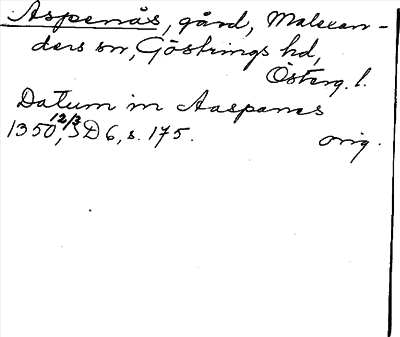 Aspenås, gård, Malexan-
ders sn, Göstrings hd,
Österg. l.
Datum in Aaspanes
1350 12/3, SD 6, s. 175. orig.